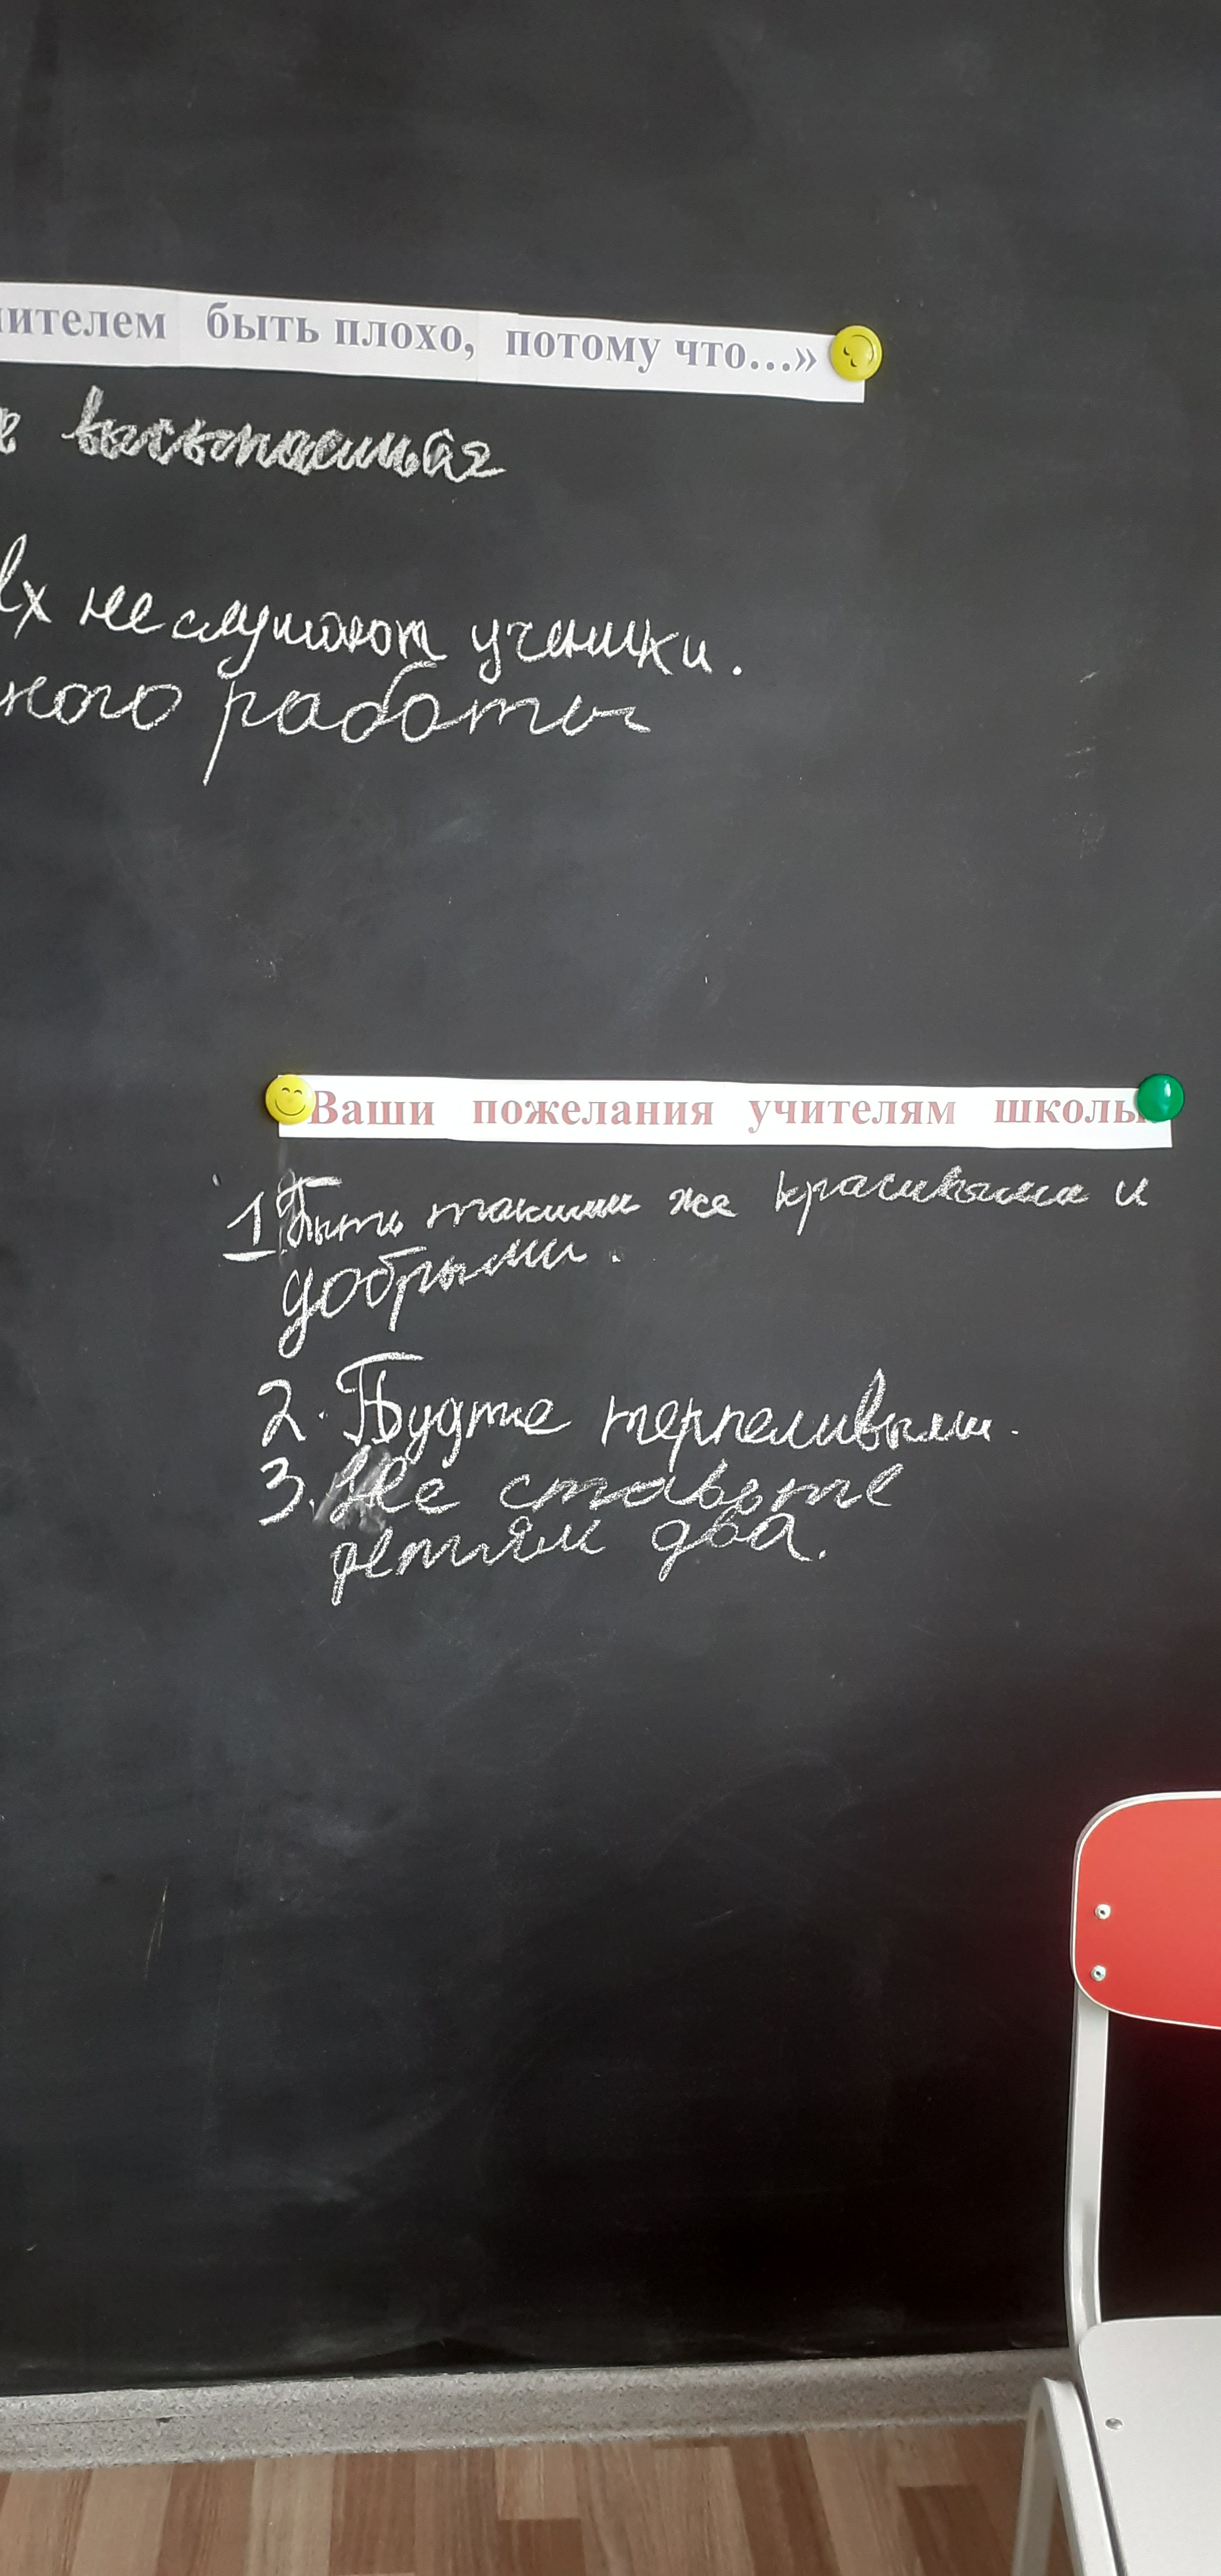 ителем быть плохо, потому что...»
е высыпаешься
Их не слушают ученики.
ного работы
Ваши пожелания учителям школы
1 Быть такими же красивыми и
добрыми.
2. Будте терпеливыми.
3. Не ставьте
детям два.